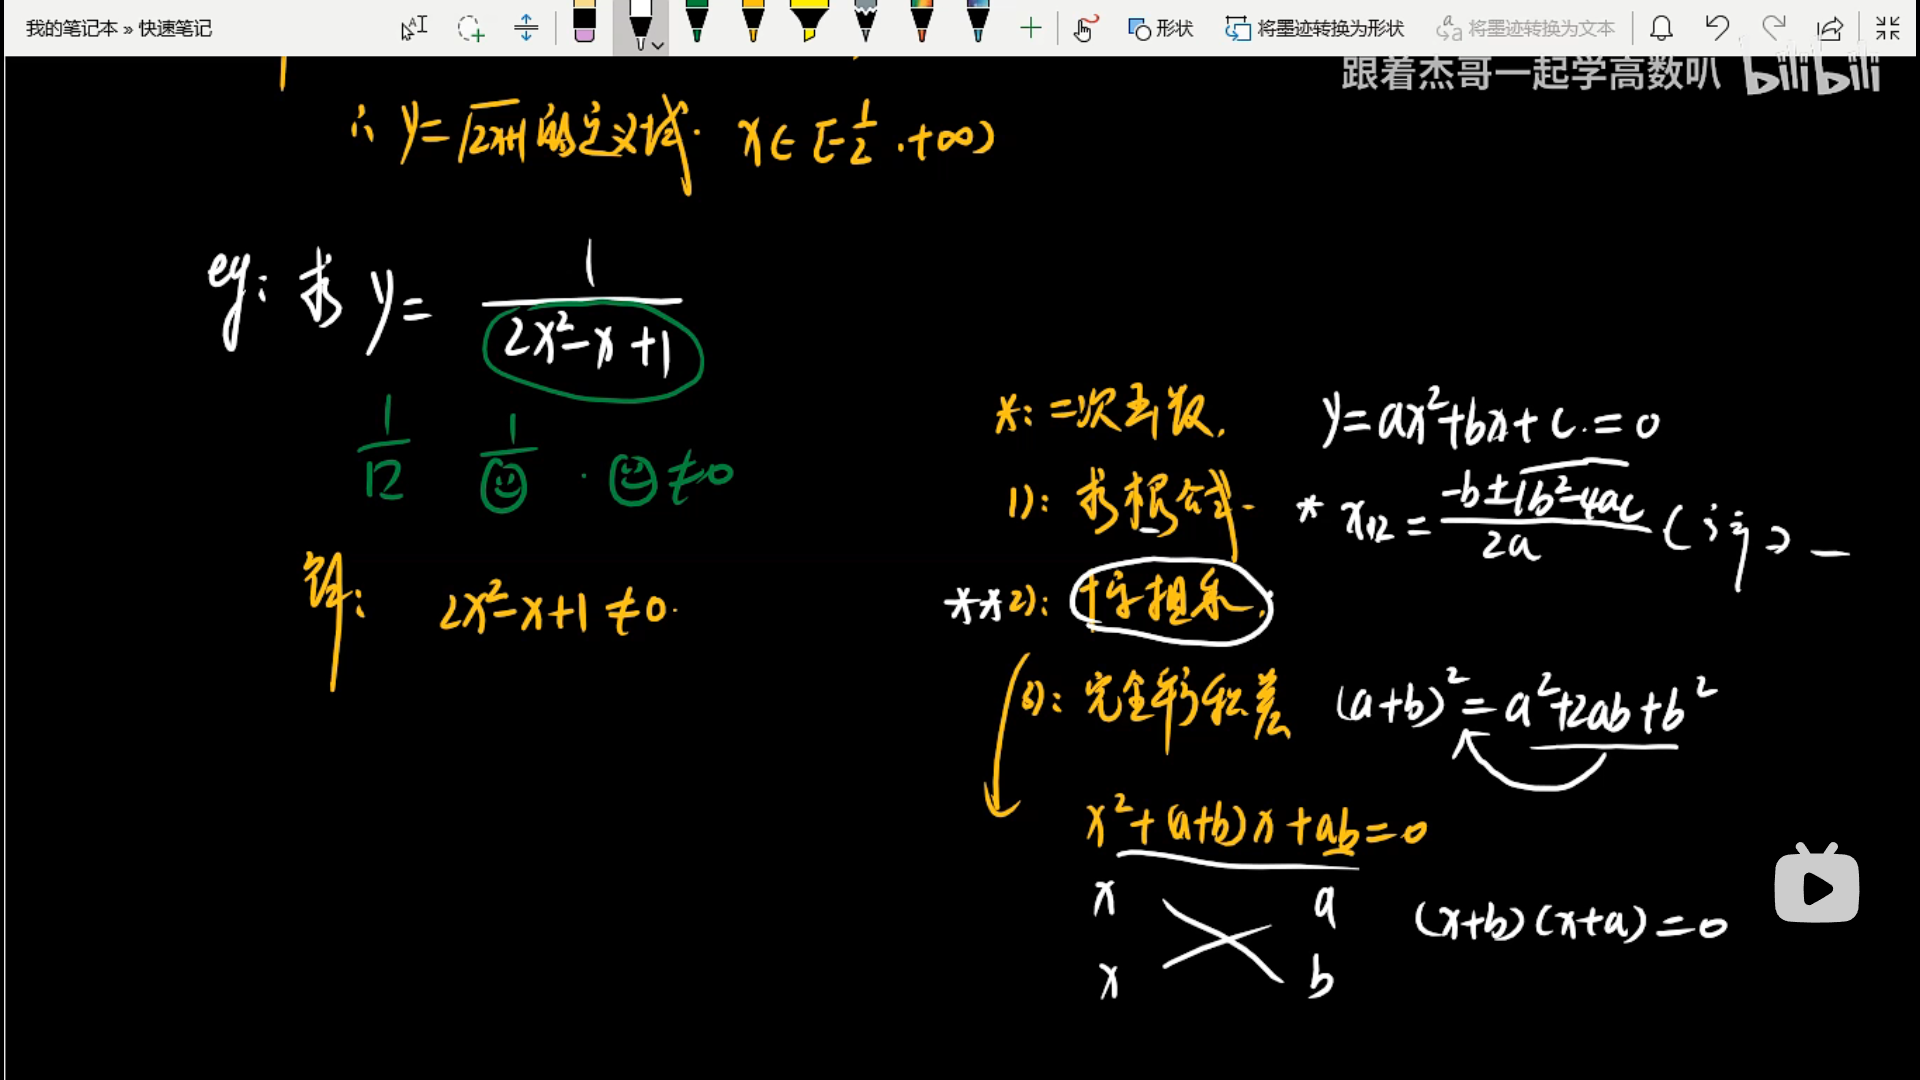 我的笔记本 » 快速笔记
形状
将墨迹转换为形状
将墨迹转换为文本
跟着杰哥一起学高数叭 bilibili
∴ y=√2x+1 的定义域. x∈[-1/2,+∞)
eg: 求 y= 1/(2x²-x+1)
1/12 1/☺ · ☺≠0
解: 2x²-x+1≠0.
*: 二次函数. y=ax²+bx+c.=0
1): 求根公式- * x₁,₂ = (-b±√b²-4ac)/2a
**2): 十字相乘.
3): 完全平方和差 (a+b)²=a²+2ab+b²
x²+(a+b)x+ab=0
x a (x+b)(x+a)=0
x b